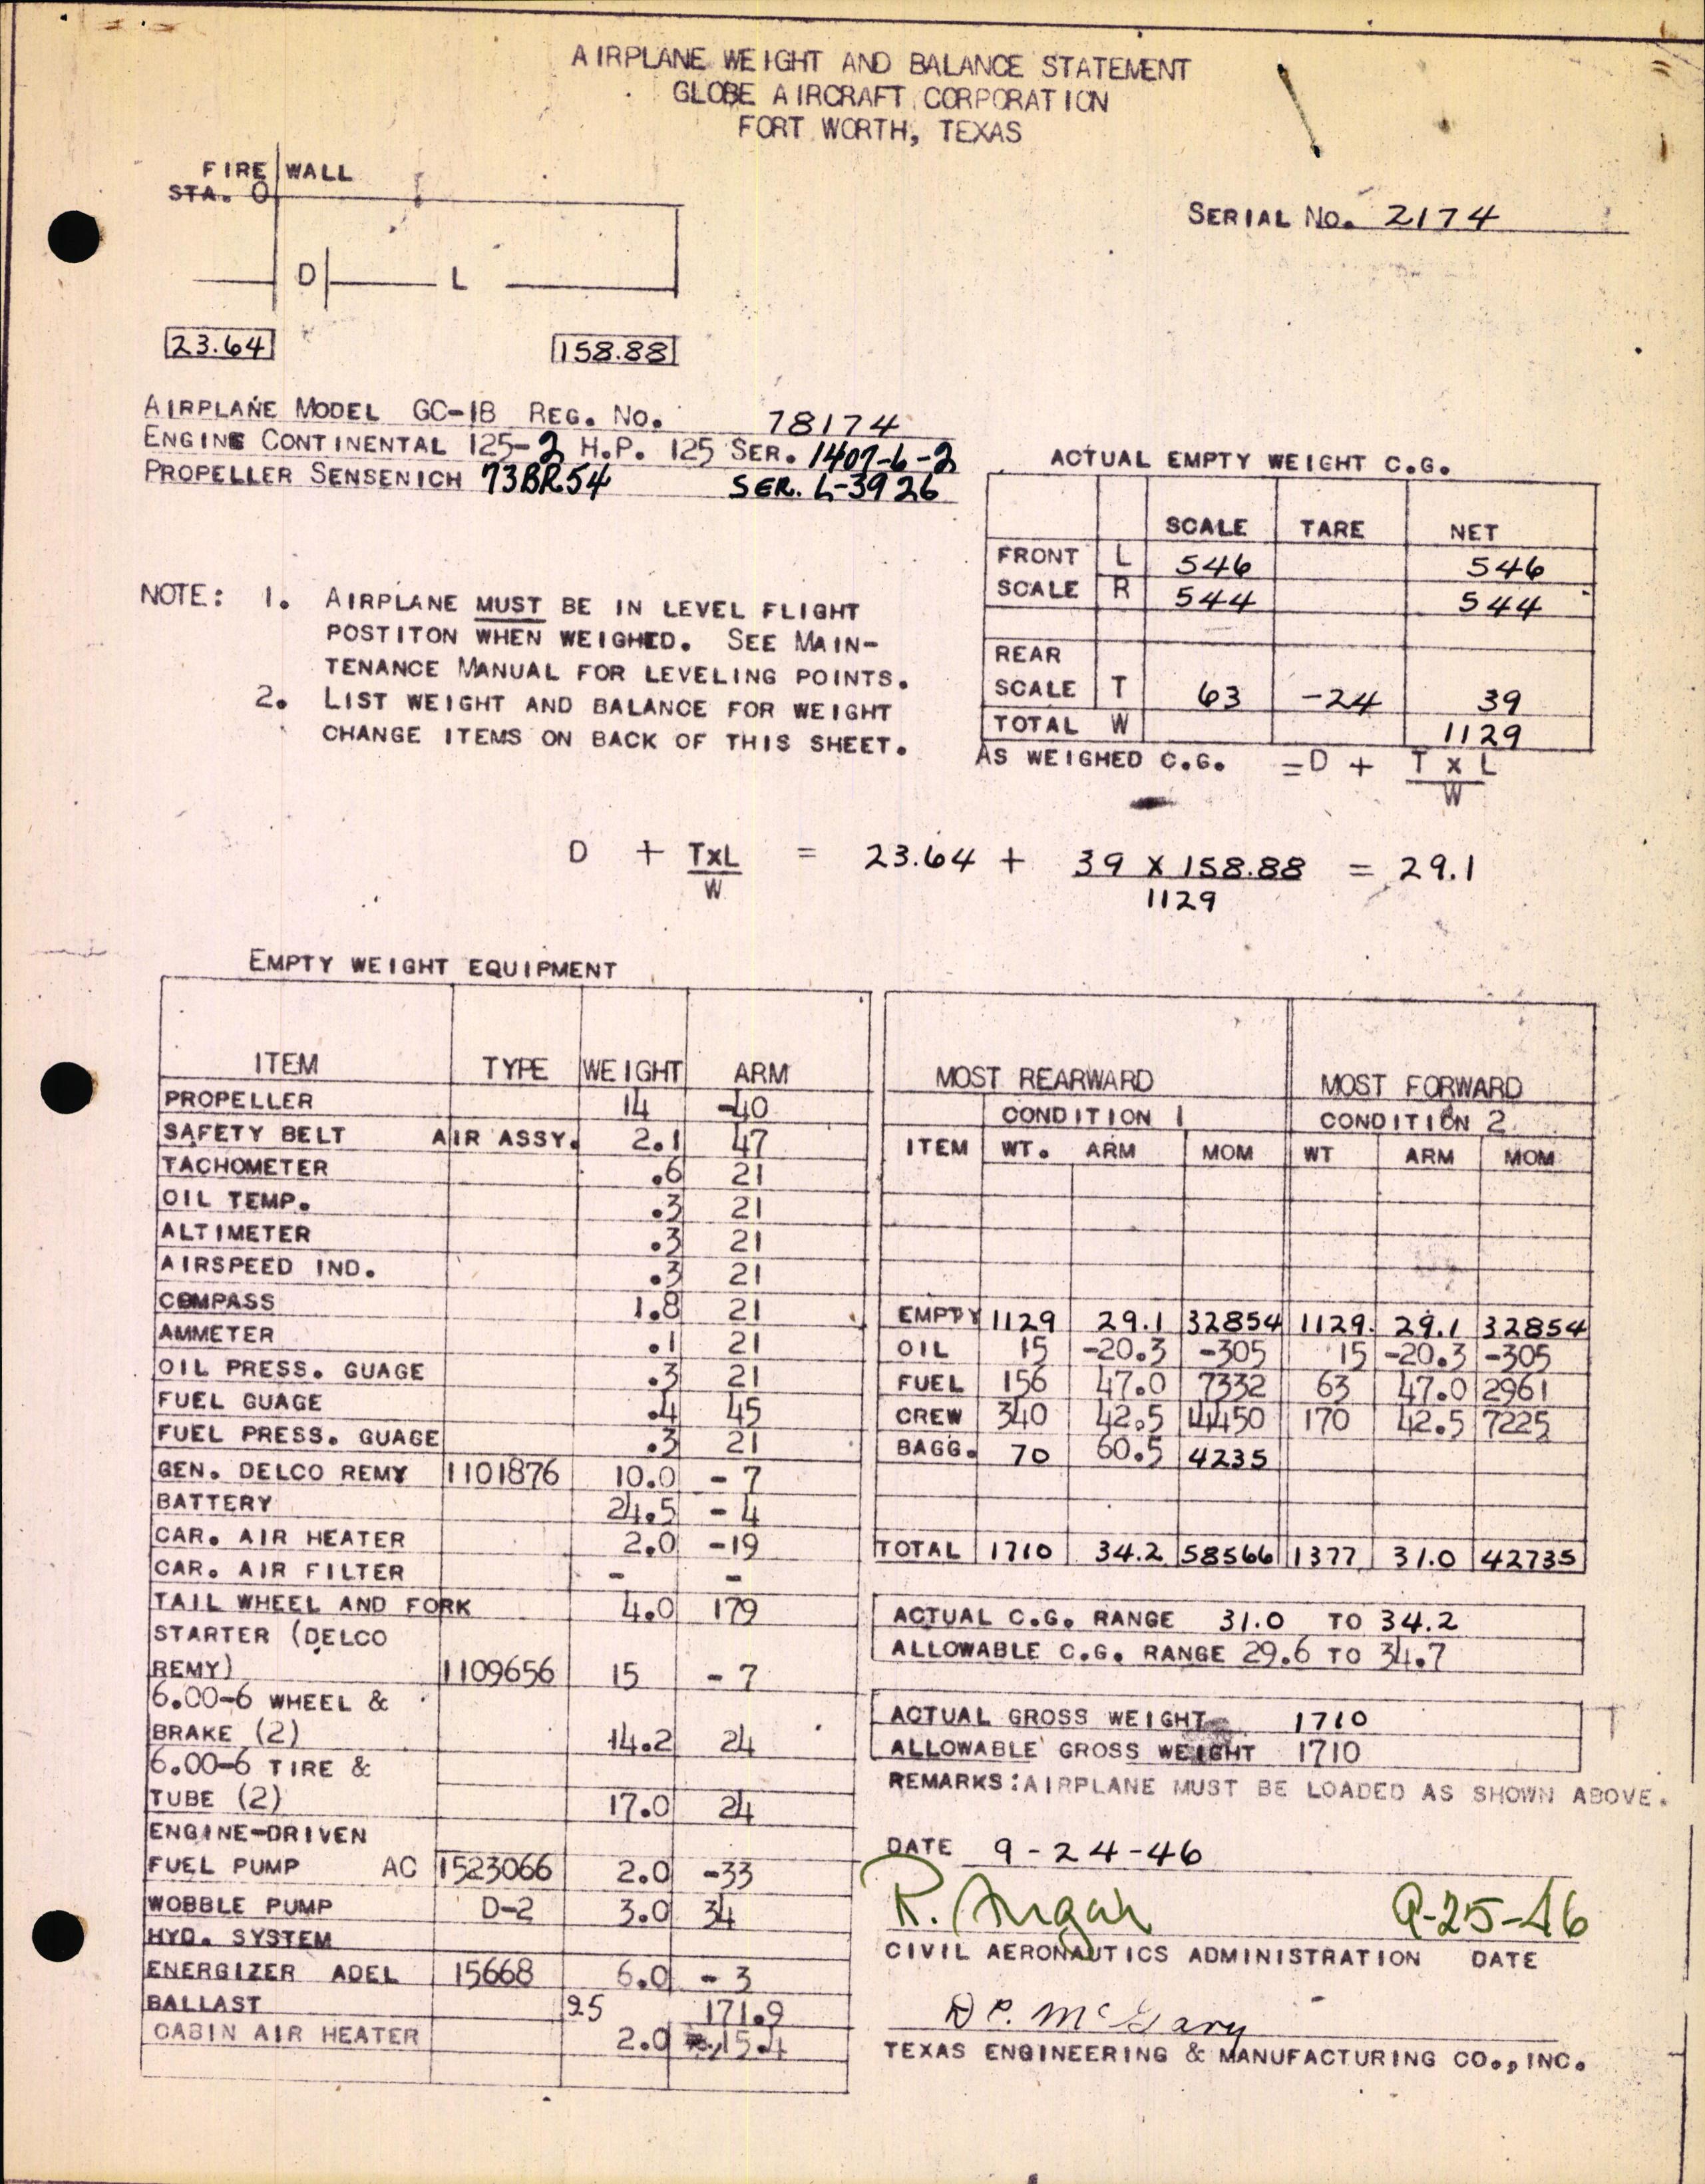 AIRPLANE WEIGHT AND BALANCE STATEMENT
GLOBE AIRCRAFT CORPORATION
FORT WORTH, TEXAS
FIRE WALL
STA. 0
SERIAL NO. 2174
D L
23.64 158.88
AIRPLANE MODEL GC-1B REG. NO. 78174
ENGINE CONTINENTAL 125-2 H.P. 125 SER. 1407-6-2
PROPELLER SENSENICH 73BR54 SER. L-3926
NOTE: 1. AIRPLANE MUST BE IN LEVEL FLIGHT
POSTITON WHEN WEIGHED. SEE MAIN-
TENANCE MANUAL FOR LEVELING POINTS.
2. LIST WEIGHT AND BALANCE FOR WEIGHT
CHANGE ITEMS ON BACK OF THIS SHEET.
ACTUAL EMPTY WEIGHT C.G.
SCALE TARE NET
FRONT L 546 546
SCALE R 544 544
REAR
SCALE T 63 -24 39
TOTAL W 1129
AS WEIGHED C.G. =D + T x L
W
D + TxL = 23.64 + 39 X 158.88 = 29.1
W 1129
EMPTY WEIGHT EQUIPMENT
ITEM TYPE WEIGHT ARM
PROPELLER 14 -40
SAFETY BELT AIR ASSY. 2.1 47
TACHOMETER .6 21
OIL TEMP. .3 21
ALTIMETER .3 21
AIRSPEED IND. .3 21
COMPASS 1.8 21
AMMETER .1 21
OIL PRESS. GUAGE .3 21
FUEL GUAGE .4 45
FUEL PRESS. GUAGE .3 21
GEN. DELCO REMY 1101876 10.0 - 7
BATTERY 24.5 - 4
CAR. AIR HEATER 2.0 -19
CAR. AIR FILTER - -
TAIL WHEEL AND FORK 4.0 179
STARTER (DELCO
REMY) 1109656 15 - 7
6.00-6 WHEEL &
BRAKE (2) 14.2 24
6.00-6 TIRE &
TUBE (2) 17.0 24
ENGINE-DRIVEN
FUEL PUMP AC 1523066 2.0 -33
WOBBLE PUMP D-2 3.0 34
HYD. SYSTEM
ENERGIZER ADEL 15668 6.0 - 3
BALLAST 25 171.9
CABIN AIR HEATER 2.0 15.4
MOST REARWARD MOST FORWARD
CONDITION 1 CONDITION 2
ITEM WT. ARM MOM WT ARM MOM
EMPTY 1129 29.1 32854 1129. 29.1 32854
OIL 15 -20.3 -305 15 -20.3 -305
FUEL 156 47.0 7332 63 47.0 2961
CREW 340 42.5 14450 170 42.5 7225
BAGG. 70 60.5 4235
TOTAL 1710 34.2 58566 1377 31.0 42735
ACTUAL C.G. RANGE 31.0 TO 34.2
ALLOWABLE C.G. RANGE 29.6 TO 34.7
ACTUAL GROSS WEIGHT 1710
ALLOWABLE GROSS WEIGHT 1710
REMARKS: AIRPLANE MUST BE LOADED AS SHOWN ABOVE.
DATE 9-24-46
R. 9-25-46
CIVIL AERONAUTICS ADMINISTRATION DATE
McGary
TEXAS ENGINEERING & MANUFACTURING CO., INC.